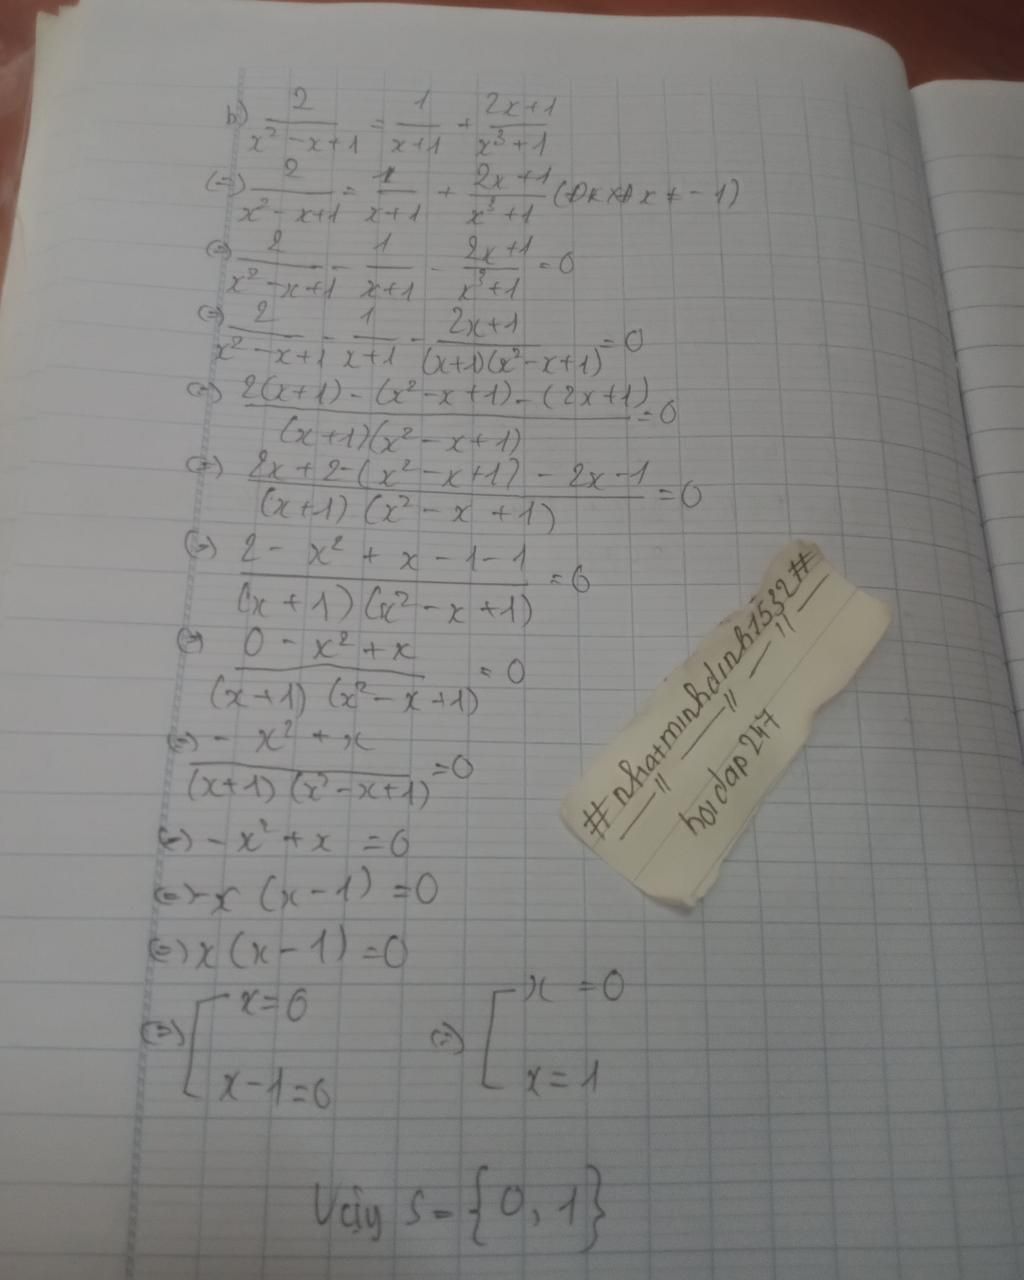 b) \frac{2}{x² - x + 1} = \frac{1}{x+1} + \frac{2x+1}{x³+1}
(=) \frac{2}{x² - x+1} = \frac{1}{x+1} + \frac{2x+1}{x³+1} (ĐKXĐ x ≠ -1)
(=) \frac{2}{x² - x+1} - \frac{1}{x+1} - \frac{2x+1}{x³+1} = 0
(=) \frac{2}{x² - x+1} - \frac{1}{x+1} - \frac{2x+1}{(x+1)(x² - x+1)} = 0
(=) \frac{2(x+1) - (x² - x+1) - (2x+1)}{(x+1)(x² - x+1)} = 0
(=) \frac{2x+2-(x² - x+1) - 2x - 1}{(x+1)(x² - x+1)} = 0
(=) \frac{2 - x² + x - 1 - 1}{(x+1)(x² - x+1)} = 0
(=) \frac{0 - x² + x}{(x+1)(x² - x+1)} = 0
(=) \frac{- x² + x}{(x+1)(x² - x+1)} = 0
(=) - x² + x = 0
(=) -x (x - 1) = 0
(=) x (x - 1) = 0
(=) [ x = 0 (=) [ x = 0
x - 1 = 0 x = 1
Vậy S = {0, 1}
# nhatminhdinh1532 #
— // — // — // —
hoidap247